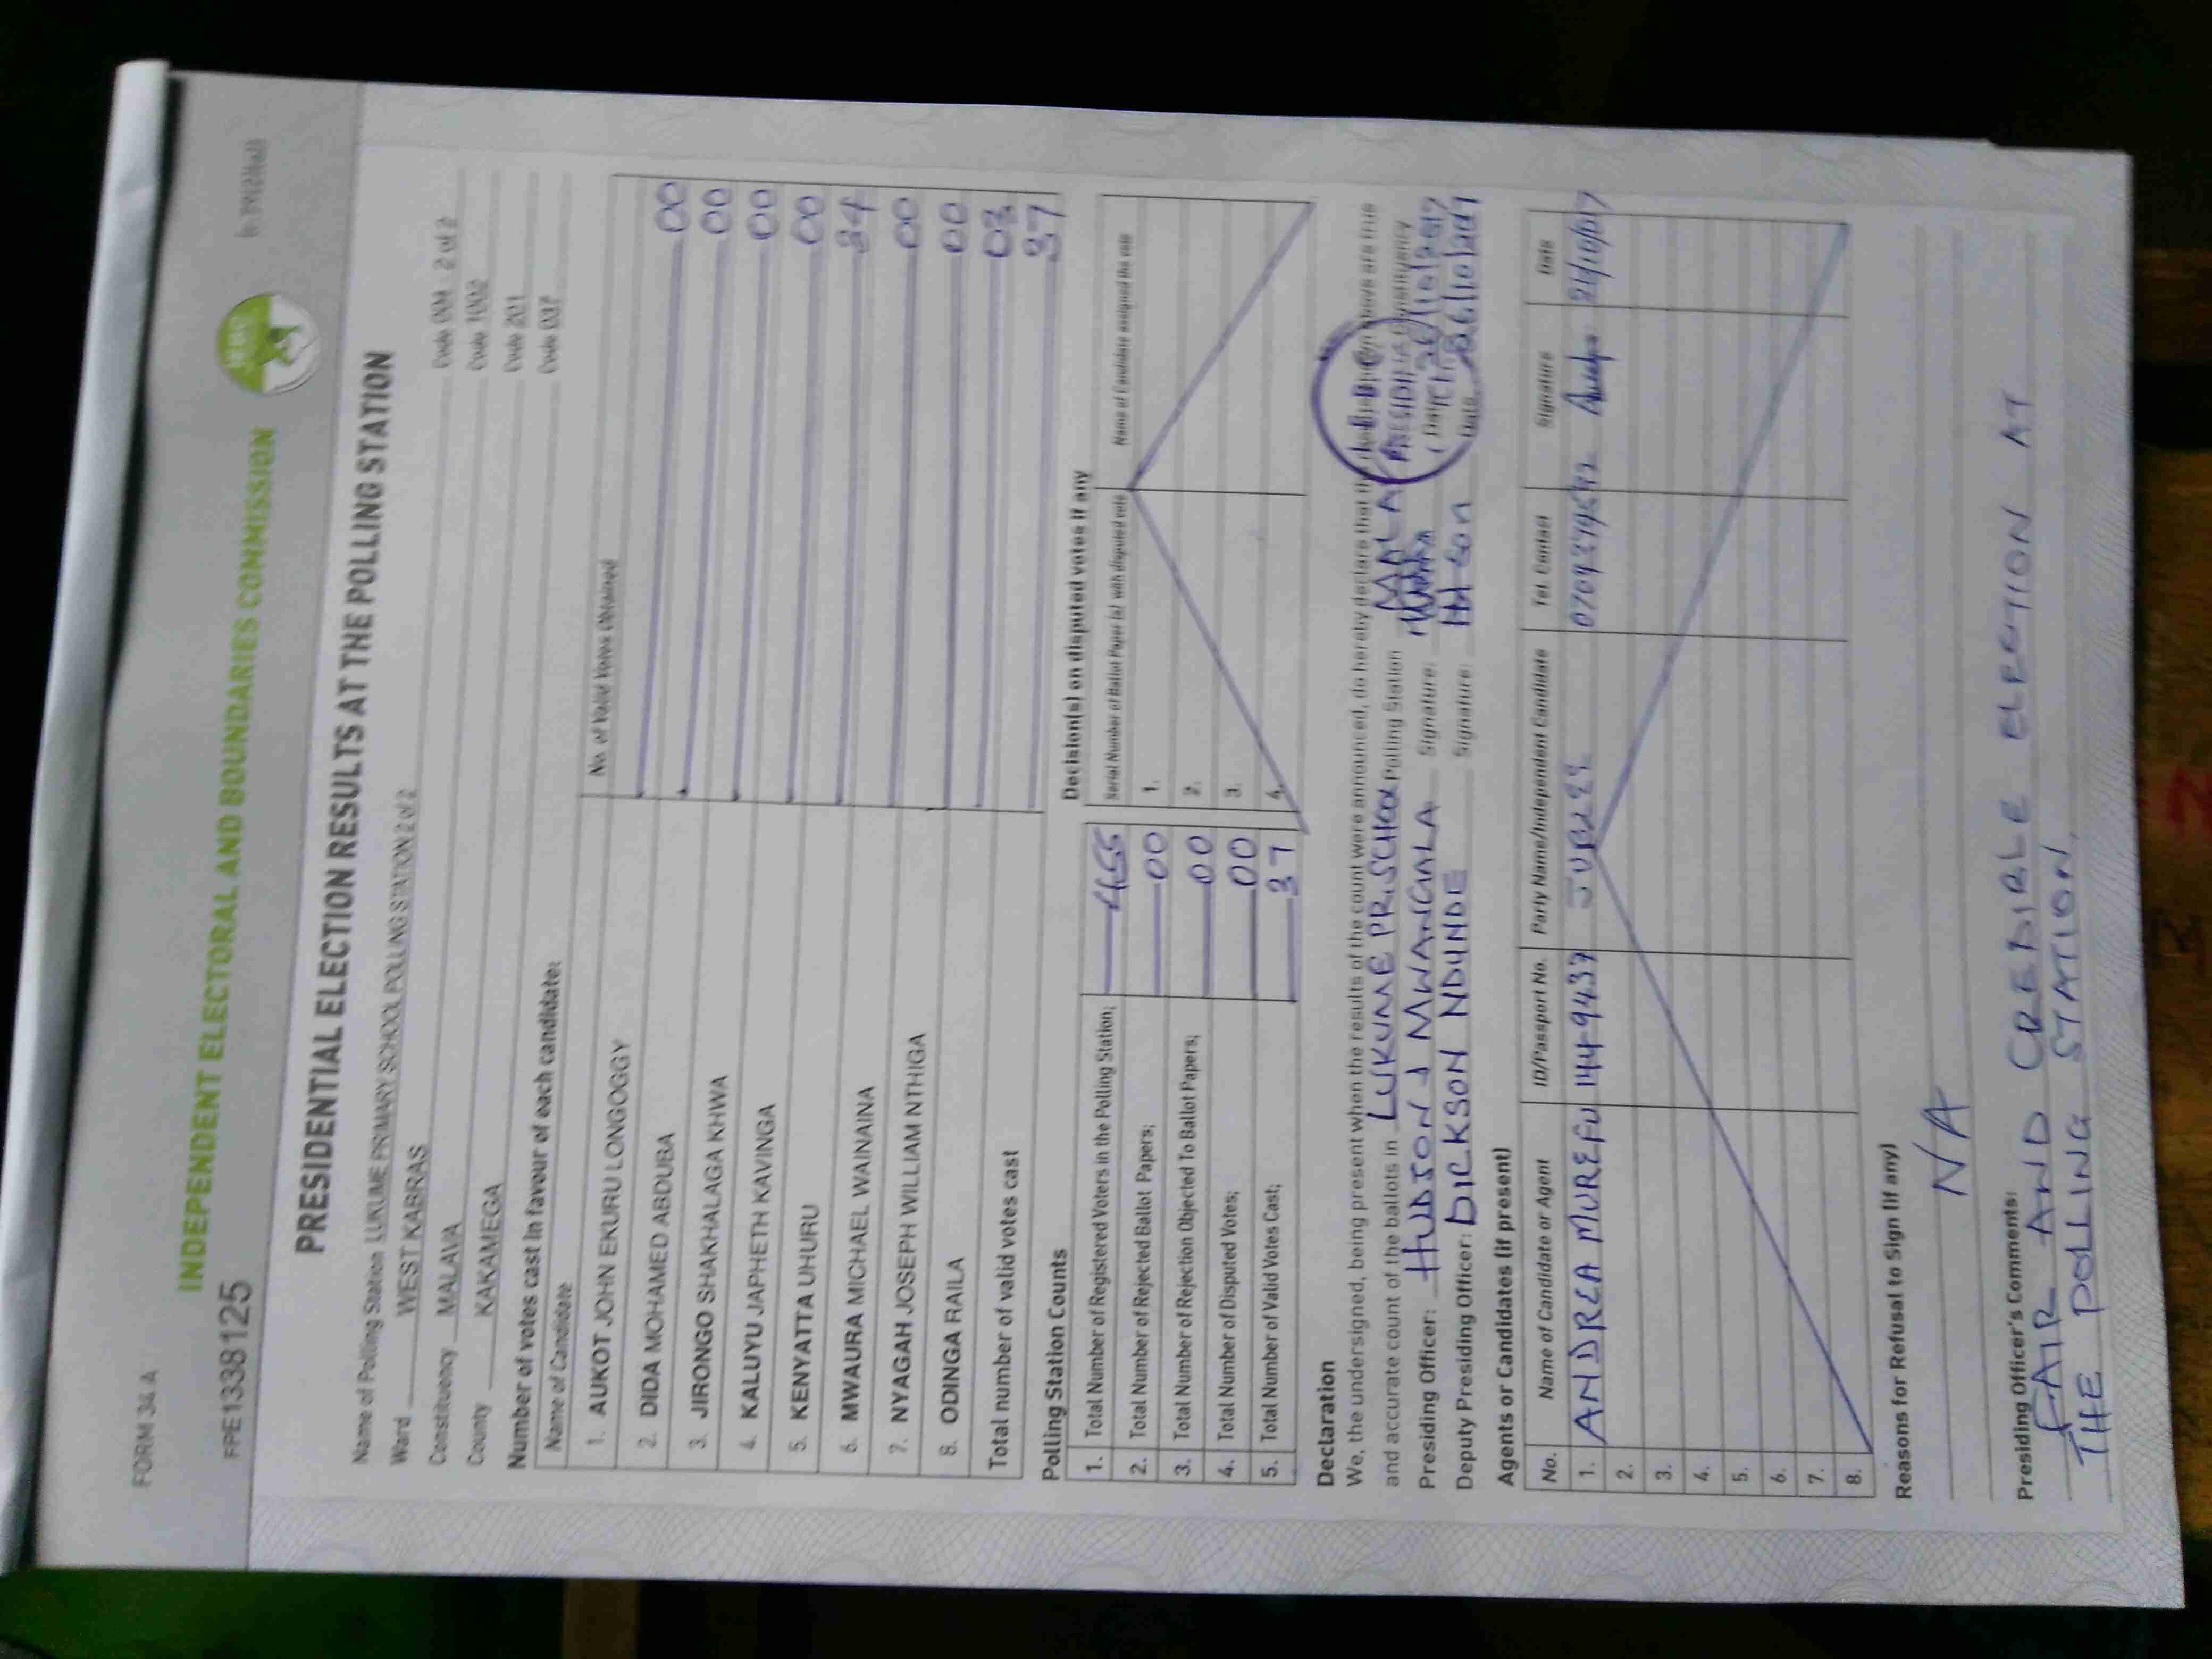 FORM 34 A
FPE1338125
INDEPENDENT ELECTORAL AND BOUNDARIES COMMISSION
PRESIDENTIAL ELECTION RESULTS AT THE POLLING STATION
Name of Polling Station LUKUME PRIMARY SCHOOL POLLING STATION 2 of 2 Code 004 - 2 of 2
Ward WEST KABRAS Code 1002
Constituency MALAVA Code 201
County KAKAMEGA Code 037
Number of votes cast in favour of each candidate:
Name of Candidate No. of Valid Votes Obtained
1. AUKOT JOHN EKURU LONGOGGY 00
2. DIDA MOHAMED ABDUBA 00
3. JIRONGO SHAKHALAGA KHWA 00
4. KALUYU JAPHETH KAVINGA 00
5. KENYATTA UHURU 34
6. MWAURA MICHAEL WAINAINA 00
7. NYAGAH JOSEPH WILLIAM NTHIGA 00
8. ODINGA RAILA 03
Total number of valid votes cast 37
Polling Station Counts
1. Total Number of Registered Voters in the Polling Station;
2. Total Number of Rejected Ballot Papers; 00
3. Total Number of Rejection Objected To Ballot Papers; 00
4. Total Number of Disputed Votes; 00
5. Total Number of Valid Votes Cast; 37
Decision(s) on disputed votes if any
Serial Number of Ballot Paper (s) with disputed vote Name of Candidate assigned the vote
1.
2.
3.
4.
Declaration
We, the undersigned, being present when the results of the count were announced, do hereby declare that the above are true
and accurate count of the ballots in LUKUME PRI SCHOOL Polling Station MALAVA Constituency
Presiding Officer: HUDSON J MWANGALA Signature: Date 26/10/2017
Deputy Presiding Officer: DICKSON NDUNDE Signature: Date 26/10/2017
Agents or Candidates (if present)
No. Name of Candidate or Agent ID/Passport No. Party Name/Independent Candidate Tel. Contact Signature Date
1. ANDREA MUREFU 1449437 JUBILEE
2.
3.
4.
5.
6.
7.
8.
Reasons for Refusal to Sign (if any)
NA
Presiding Officer's Comments:
FAIR AND CREDIBLE ELECTION AT
THE POLLING STATION.